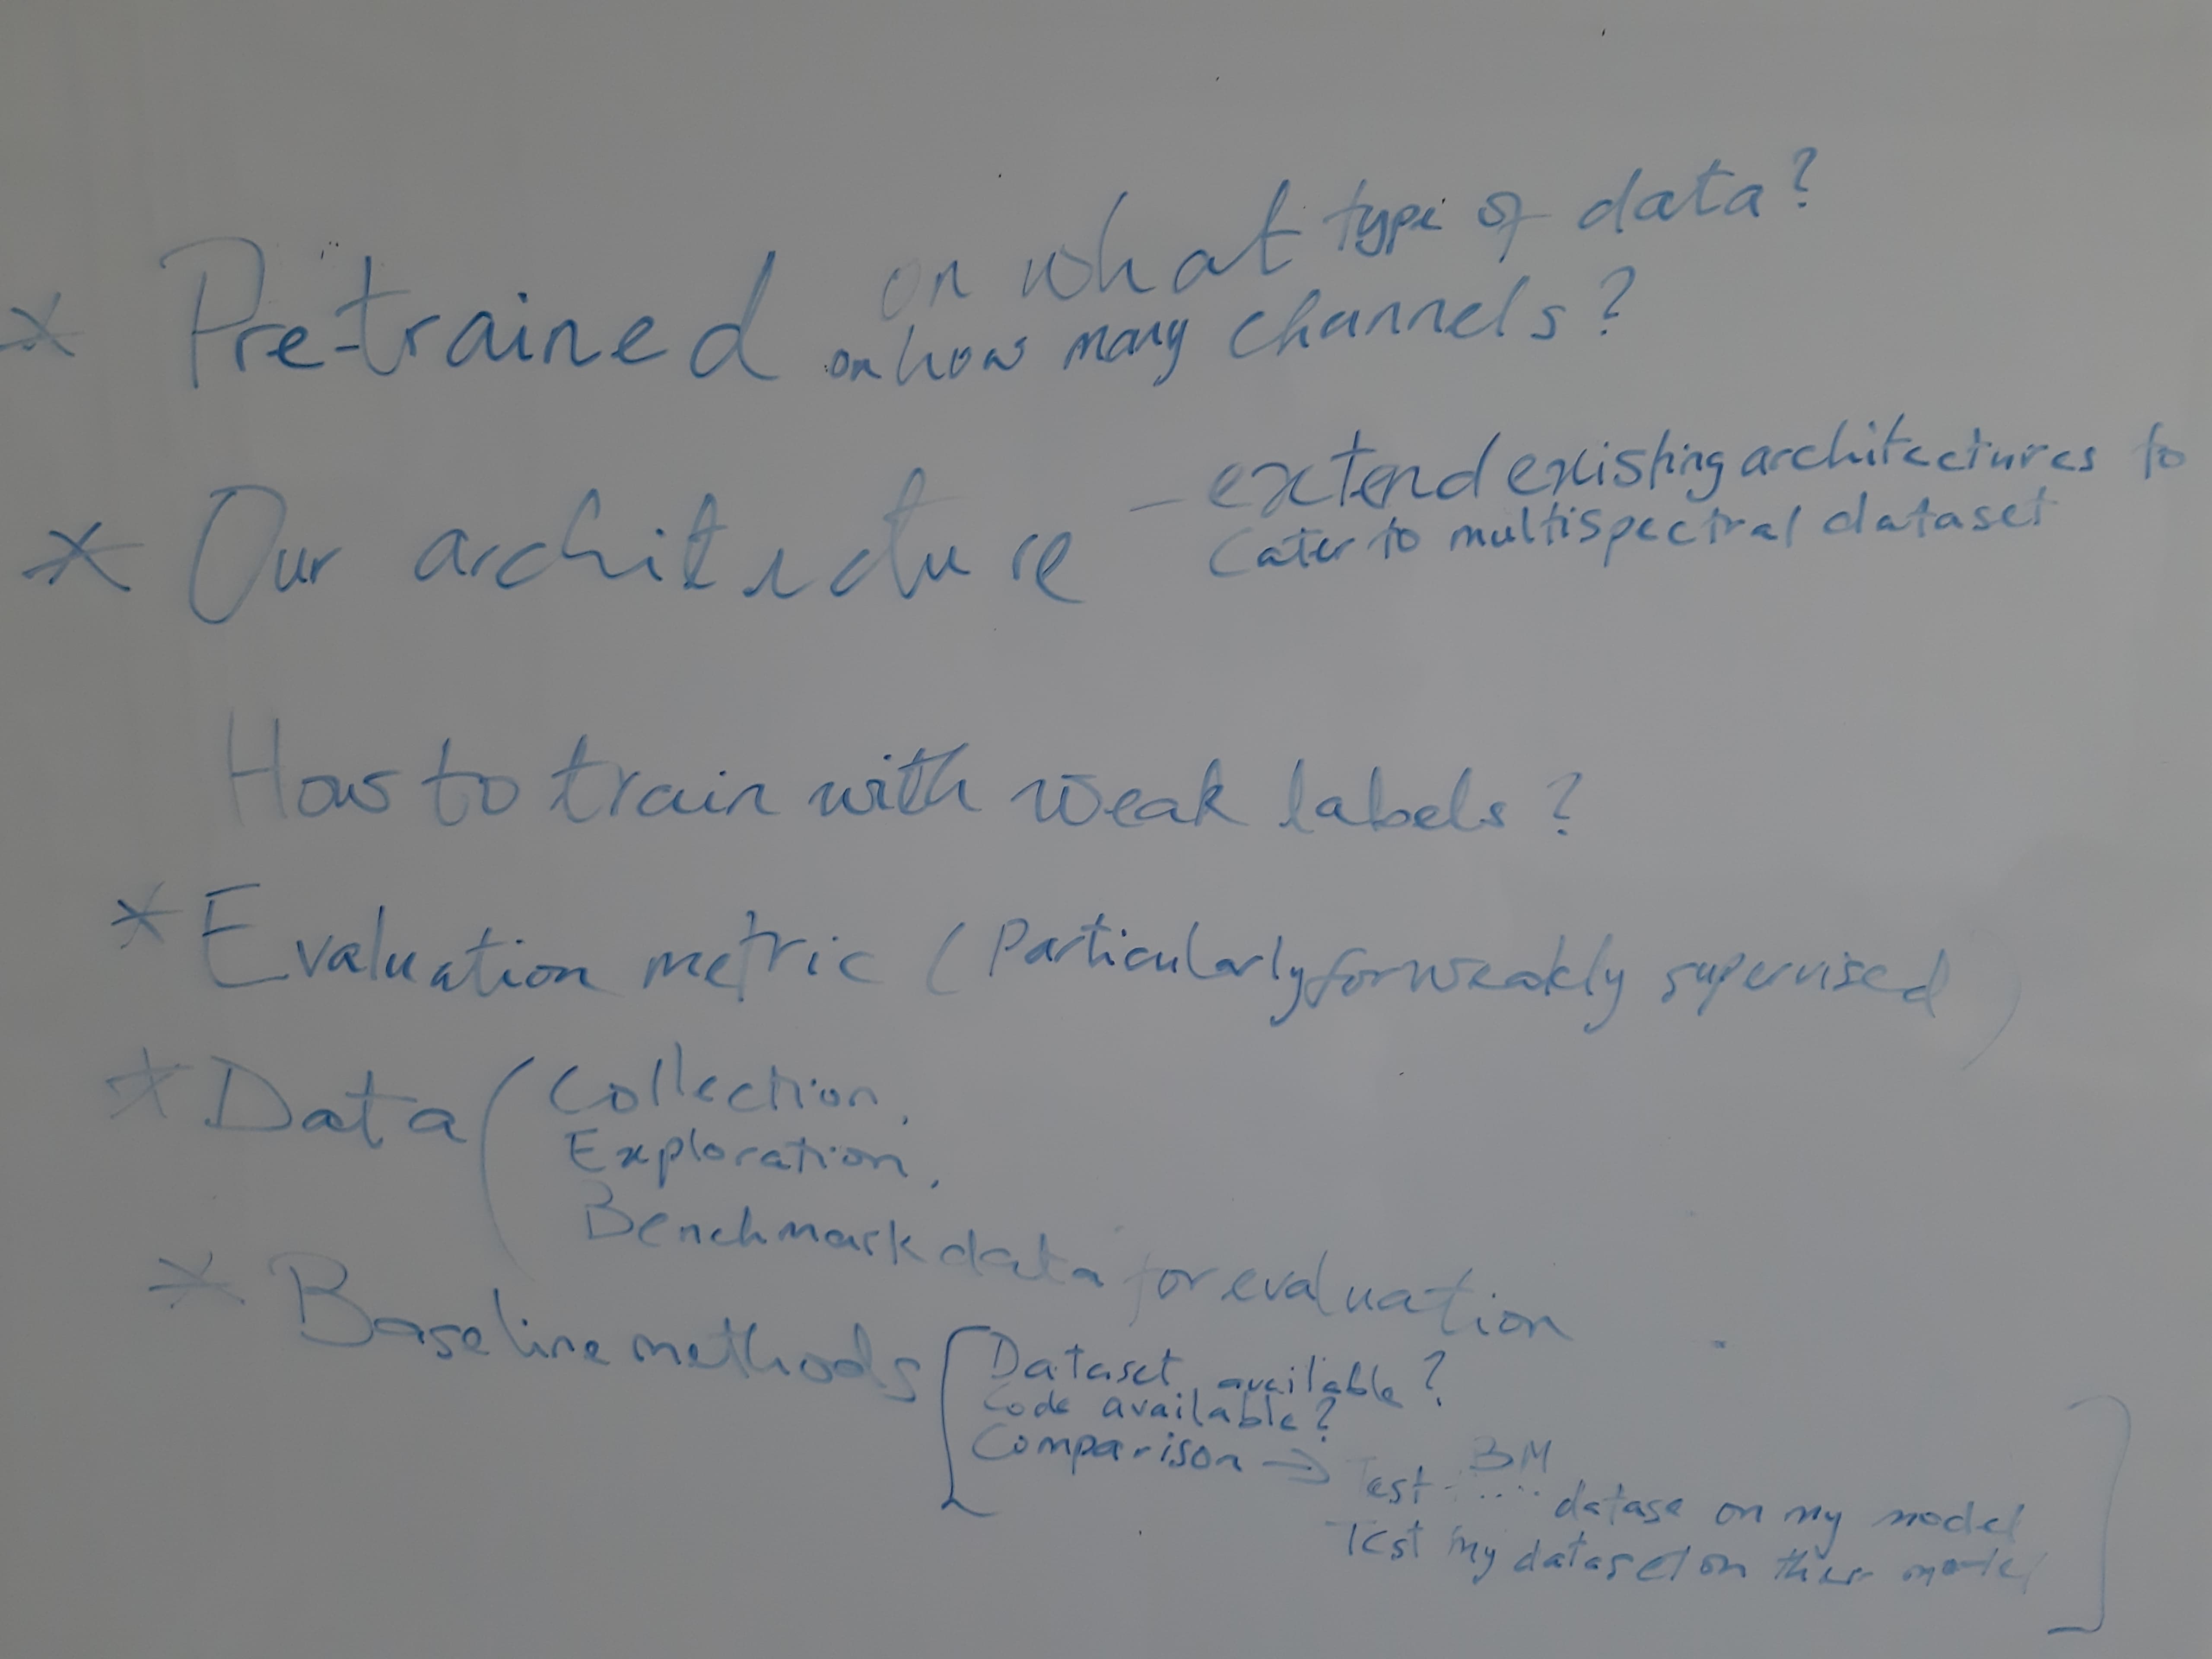 on what type of data?
* Pre-trained on how many channels?
* Our architecture - extend existing architectures to
cater to multispectral dataset
How to train with weak labels?
* Evaluation metric (Particularly for weakly supervised)
* Data (Collection,
Exploration,
Benchmark data for evaluation
* Baseline methods [Dataset available?
Code available?
Comparison → Test BM datase on my model
Test my dataset on their model]